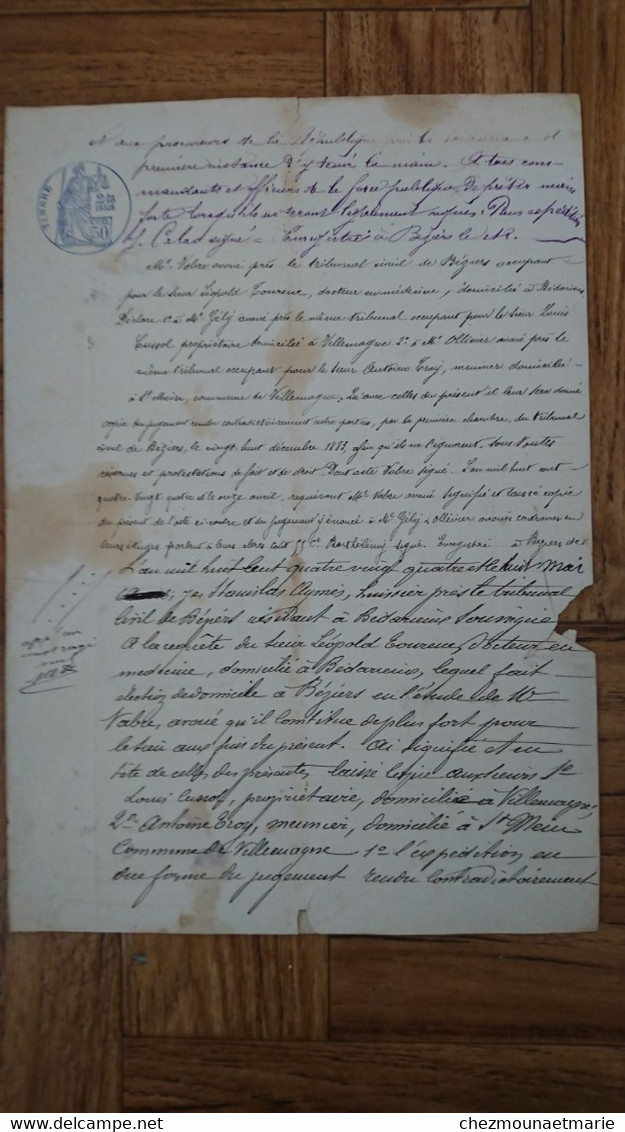 procureurs de la République près les tribunaux de
première instance d'y tenir la main. A tous com-
mandants et officiers de la force publique de prêter main
forte lorsqu'ils en seront légalement requis. Pour expédition
signé = Enregistré à Béziers le
TIMBRE
Me. Vabre avoué près le tribunal civil de Béziers occupant
pour le sieur Léopold Toureux, docteur en médecine, domicilié à Bédarieux
Déclare 1° à Me Gély avoué près le même tribunal occupant pour le sieur Louis
Cussol propriétaire domicilié à Villemagne 2° à Me Ollivier avoué près le
même tribunal occupant pour le sieur Antoine Eroy, meunier domicilié
à St commune de Villemagne. Qu'avec celles du présent il leur sera donné
copie du jugement rendu contradictoirement entre parties, par la première chambre du tribunal
civil de Béziers, le vingt huit décembre 1883, afin qu'ils ne l'ignorent. Sous toutes
réserves et protestations de fait et de droit. Dont acte Vabre signé. L'an mil huit cent
quatre vingt quatre et le onze avril, requérant Me. Vabre avoué signifié et laissé copie
du présent de l'acte ci-contre et du jugement y énoncé à Me. Gély & Ollivier avoués en
leurs études parlant à leurs clercs coût Barthélemy signé. Enregistré à Béziers
L'an mil huit cent quatre vingt quatre et le huit Mai
je Stanislas Aymes, huissier près le tribunal
Civil de Béziers résidant à Bédarieux Soussigné
A la requête du sieur Léopold Toureux, docteur en
médecine, domicilié à Bédarieux, lequel fait
élection de domicile à Béziers en l'étude de Me
Vabre, avoué qu'il constitue de plus fort pour
le sieu aux fins du présent. Ai signifié et en
tête de celles des présentes laissé copie aux sieurs 1°
Louis Cussol, propriétaire, domicilié à Villemagne,
2° Antoine Eroy, meunier, domicilié à St Mein
Commune de Villemagne 1° l'expédition en
due forme du jugement rendu contradictoirement
chezmounaetmarie